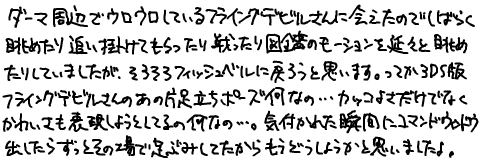 ダーマ周辺でウロウロしているフライングデビルさんに会えたのでしばらく
眺めたり追い掛けてもらったり戦ったり図鑑のモーションを延々と眺め
たりしていましたが、そろそろフィッシュベルに戻ろうと思います。ってか3DS版
フライングデビルさんのあの片足立ちポーズ何なの…カッコよさだけでなく
かわいさも表現しようとしてるの何なの…。気付かれた瞬間にコマンドウィンドウ
出したらずっとその場で足ぶみしてたからもうどうしようかと思いましたよ。